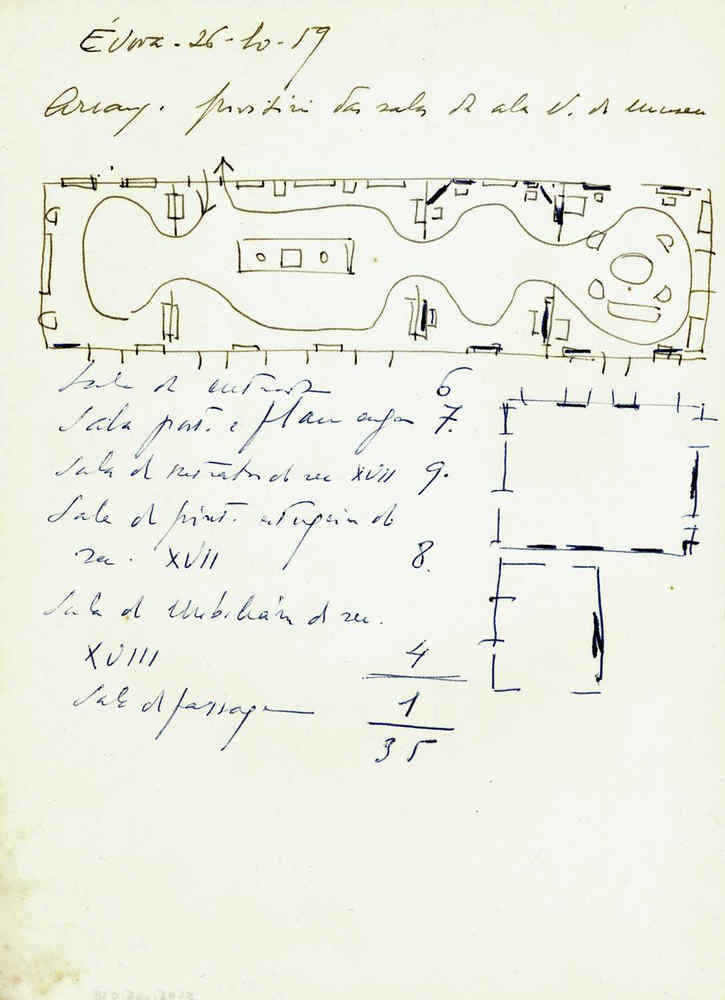 Évora - 26-10-59
Arranj. provisório das salas da ala N. do museu
Sala de entrada 6
Sala port. e flam 7.
Sala de retratos do sec XVII 9.
Sala de pint. estrangeira do
sec. XVII 8.
Sala de mobiliário do sec.
XVIII 4
Sala de passagem 1
35